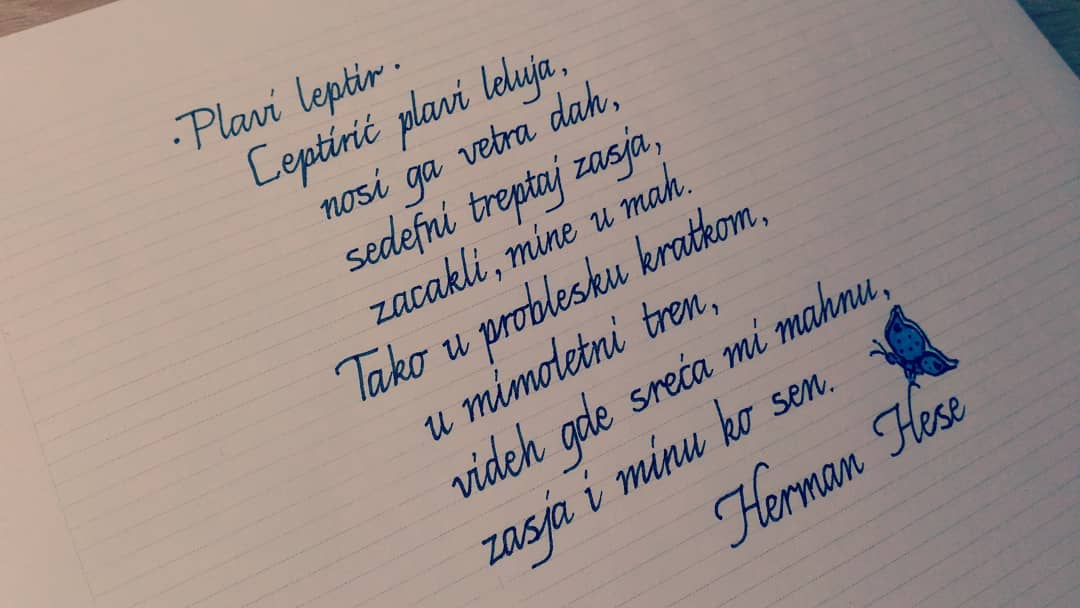 • Plavi leptir •
Leptirić plavi leluja,
nosi ga vetra dah,
sedefni treptaj zasja,
zacakli, mine u mah.
Tako u problesku kratkom,
u mimoletni tren,
videh gde sreća mi mahnu,
zasja i minu ko sen.
Herman Hese